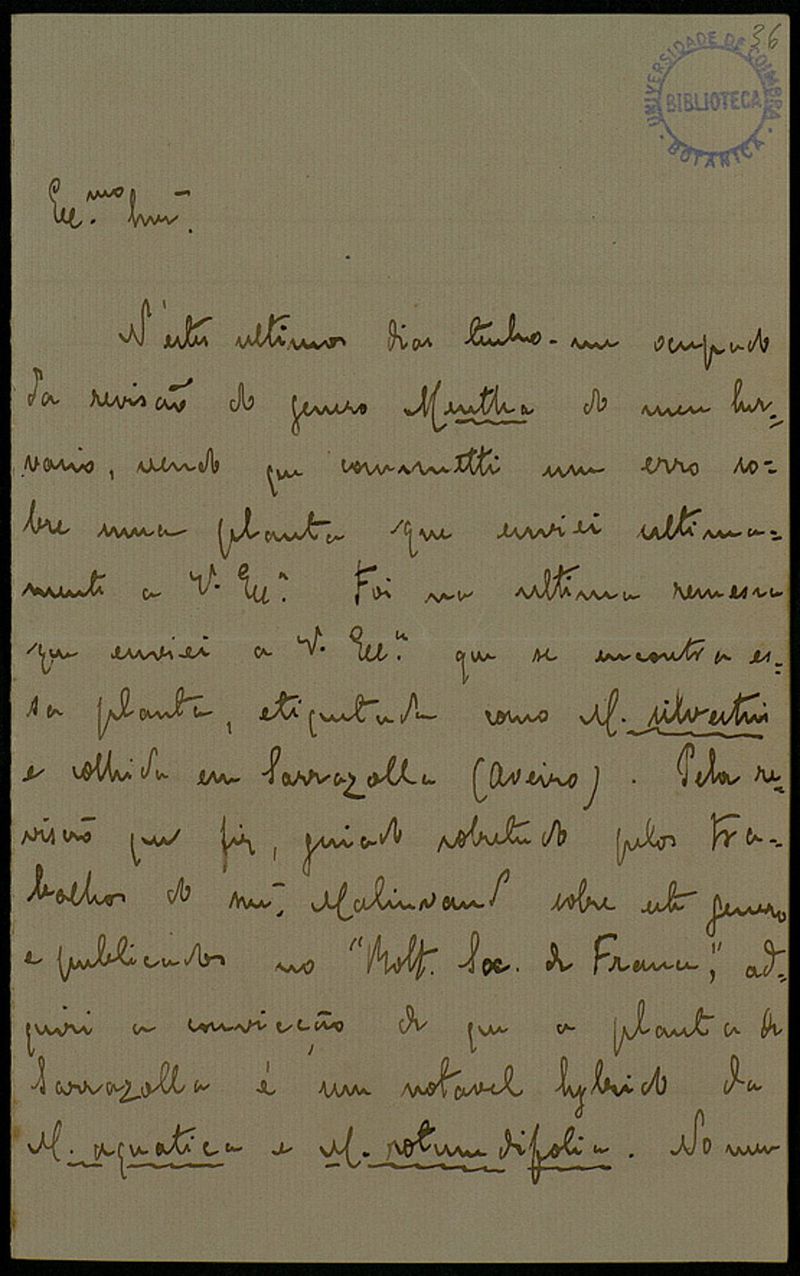 36
UNIVERSIDADE DE COIMBRA
BIBLIOTECA
BOTANICA
Ex.mo Snr.
N'estes ultimos dias tenho-me occupado
da revisão do genero Mentha do meu her-
vario, vendo que commetti um erro so-
bre uma planta que enviei ultima-
mente a V. Ex.a Foi na ultima remessa
que enviei a V. Ex.a que se encontra es-
sa planta, etiquetada como M. silvestris
e colhida em Sarrazolla (Aveiro). Pela re-
visão que fiz, guiado sobretudo pelos tra-
balhos do snr. Malinvaud sobre este genero
e publicados no " Soc. de France", ad-
quiri a convicção de que a planta de
Sarrazolla é um notavel hybrido da
M. aquatica e M. rotundifolia. No meu